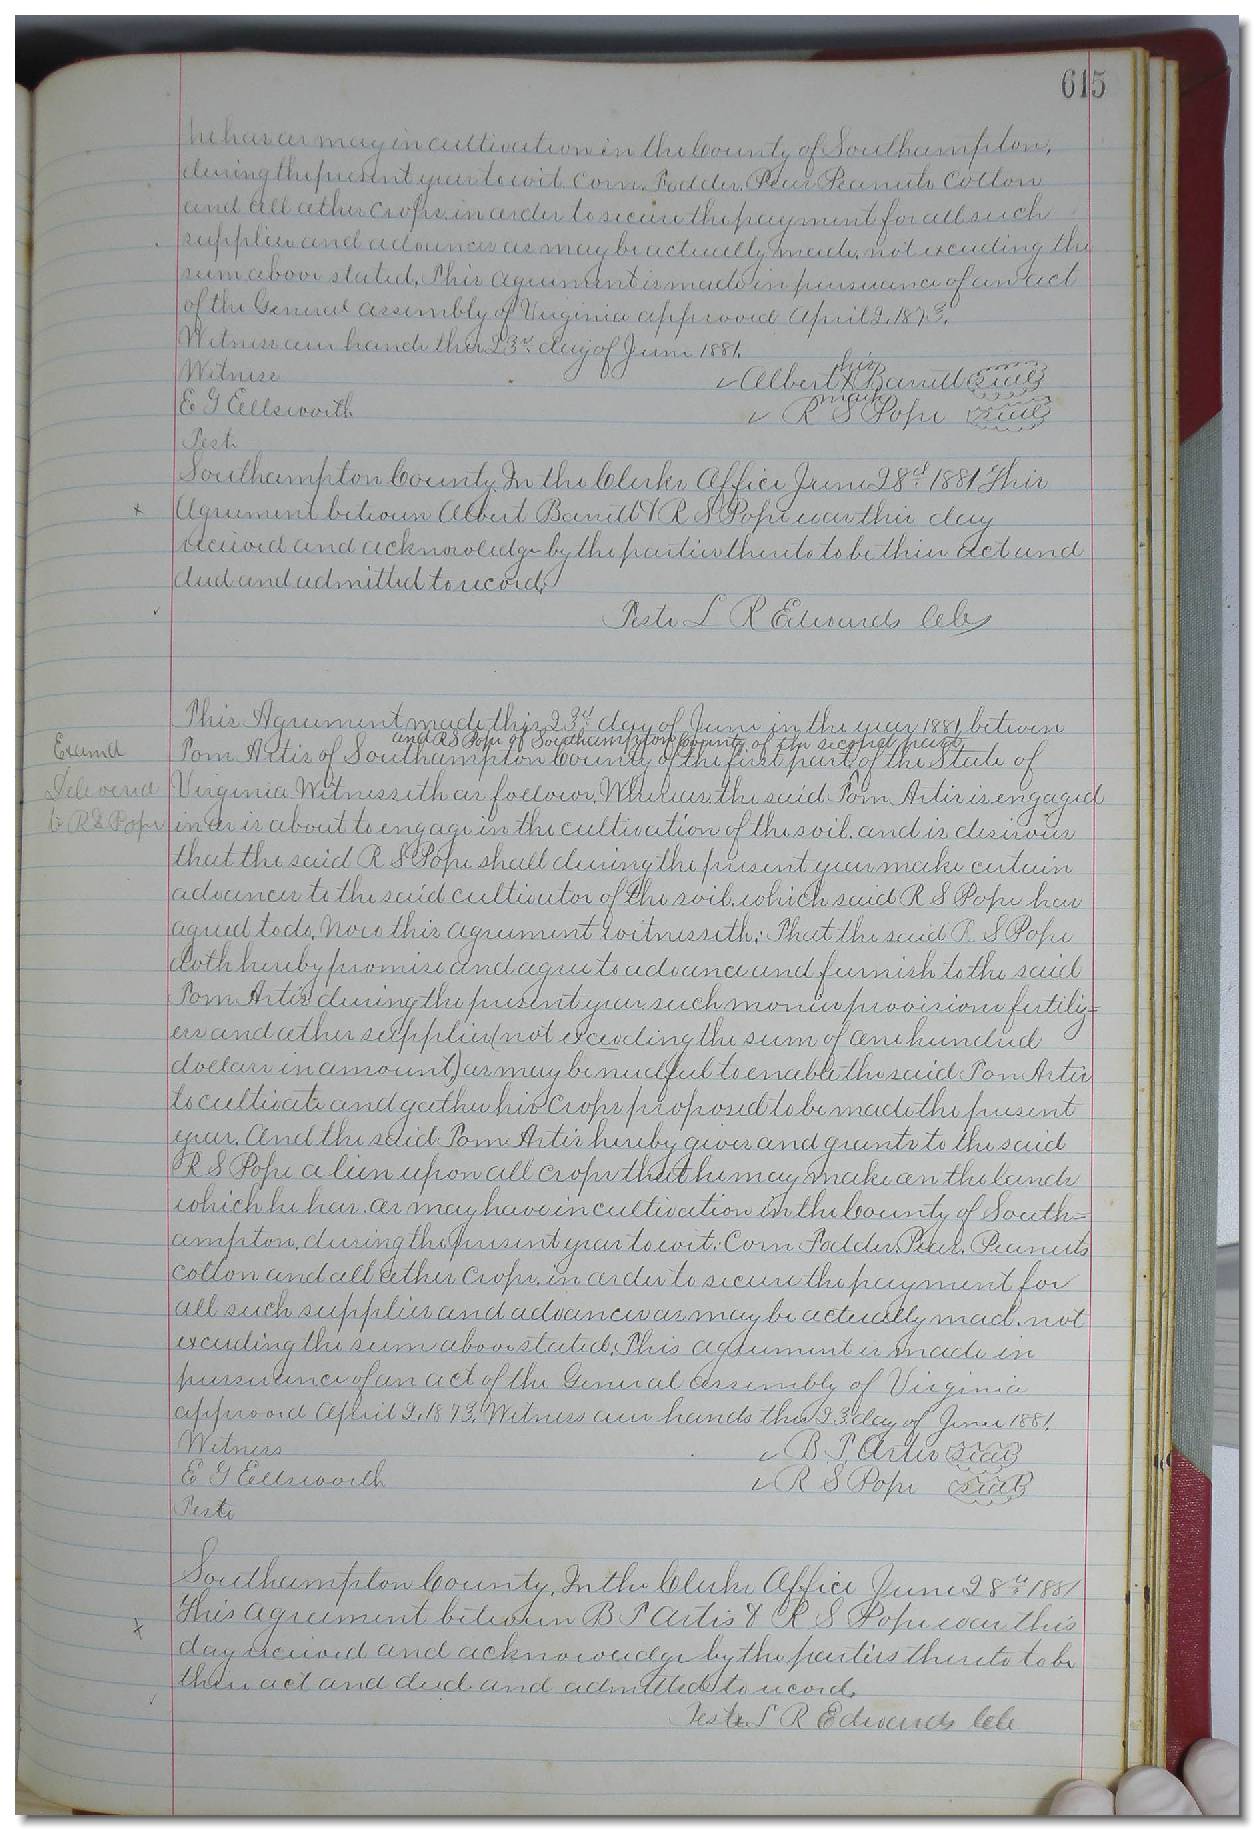 615
he has or may in cultivation in the County of Southampton,
during the present year to wit. Corn. Fodder. Peas Peanuts Cotton
and all other crops. in order to secure the payment for all such
supplies and advances as may be actually made, not exceeding the
sum above stated. This agreement is made in pursuance of an act
of the General assembly of Virginia approved April 2. 1873.
Witness our hands this 23rd day of June 1881.
his
Witness Albert X Barrett Seal
mark
E G Ellsworth R S Pope Seal
Test.
Southampton County. In the Clerks Office June 28th 1881 This
Agreement between Albert Barrett & R S Pope was this day
received and acknowledge by the parties thereto to be their act and
deed and admitted to record.
Teste L R Edwards Clk
This Agreement made this 23rd day of June in the year 1881, between
and R S Pope of Southampton County of the second part,
Examd
Tom Artis of Southampton County of the first part, of the State of
Delivered
Virginia Witnesseth as follows, Whereas, the said Tom Artis is engaged
to R S Pope
in or is about to engage in the cultivation of the soil. and is desirous
that the said R S Pope shall during the present year make certain
advances to the said cultivator of the soil. which said R S Pope has
agreed to do, Now this agreement witnesseth: That the said R S Pope
doth hereby promise and agree to advance and furnish to the said
Tom Artis during the present year. such monies provisions fertiliz=
ers and other supplies (not exceeding the sum of one hundred
dollars in amount) as may be needful to enable the said Tom Artis
to cultivate and gather his crops proposed to be made the present
year. And the said Tom Artis hereby gives and grants to the said
R S Pope a lien upon all crops that he may make on the lands
which he has. or may have in cultivation in the County of South=
ampton, during the present year to wit: Corn Fodder, Peas. Peanuts
cotton and all other crops. in order to secure the payment for
all such supplies and advances as may be actually mad. not
exceeding the sum above stated; This agreement is made in
pursuance of an act of the General assembly of Virginia
approved April 2. 1873. Witness our hands this 23 day of June 1881.
Witness B T Artis Seal
E G Ellsworth R S Pope Seal
Teste
Southampton County, In the Clerks Office June 28th 1881
This agreement between B T Artis & R S Pope was this
day received and acknowledge by the parties thereto to be
their act and deed and admitted to record.
Teste L R Edwards Clk